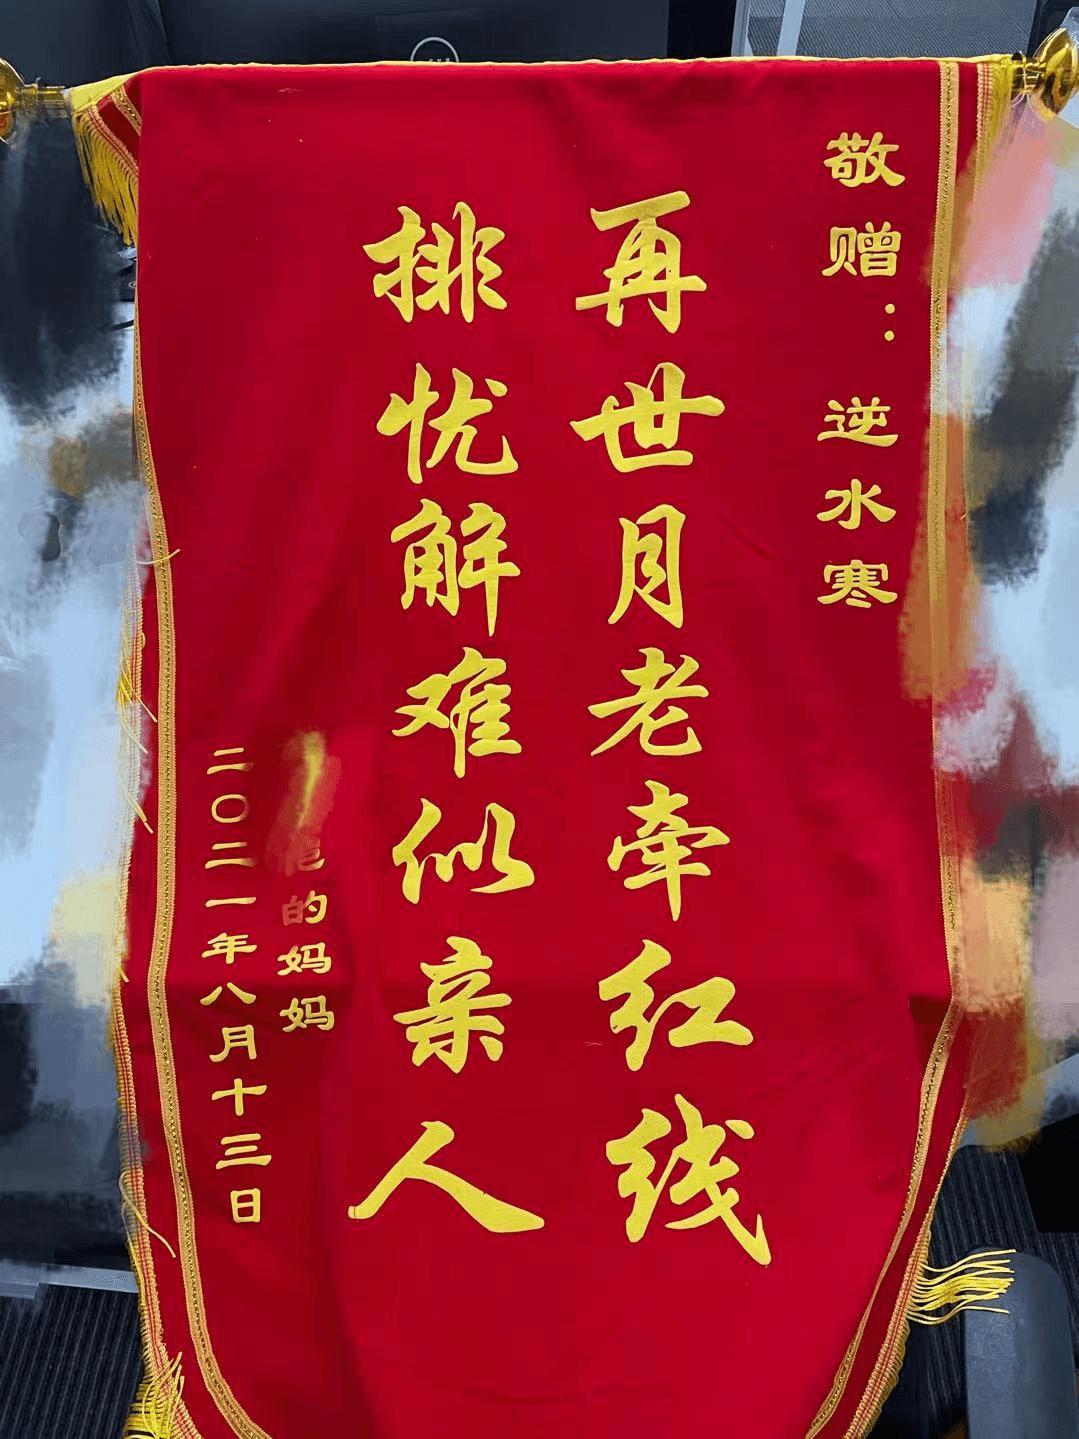 敬赠：逆水寒
再世月老牵红线
排忧解难似亲人
的妈妈
二〇二一年八月十三日